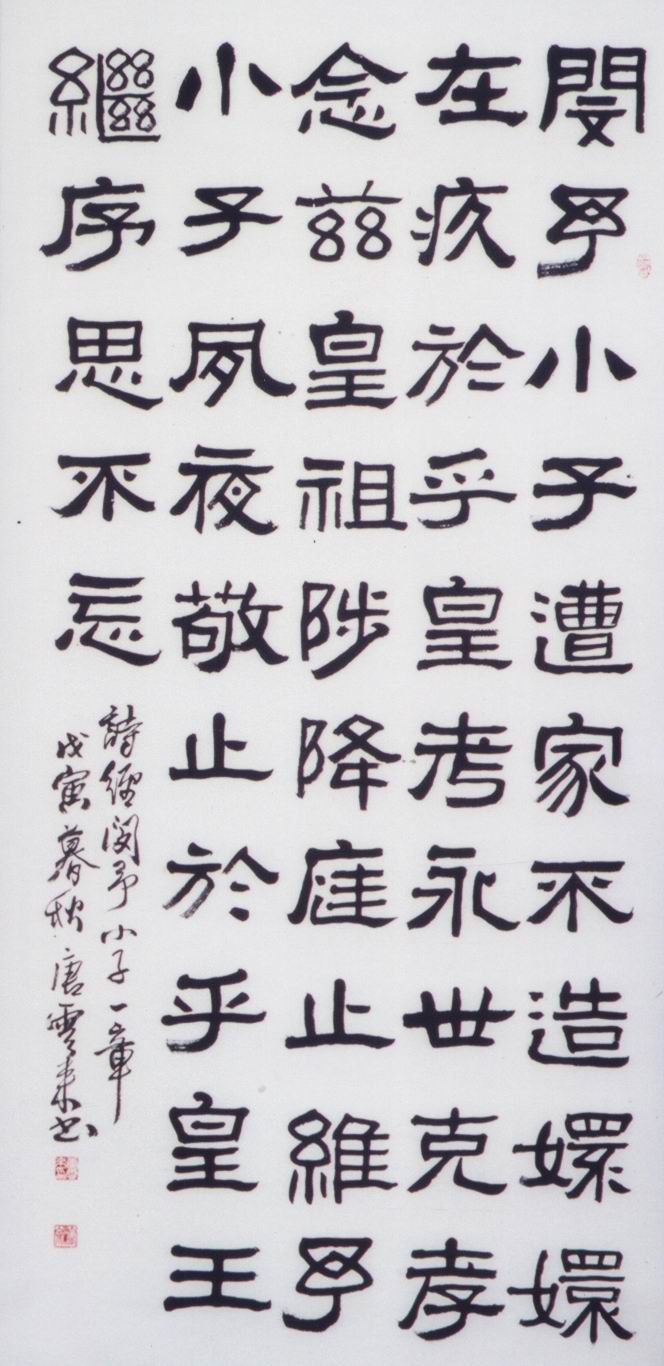 閔予小子遭家不造嬛嬛
在疚於乎皇考永世克孝
念茲皇祖陟降庭止維予
小子夙夜敬止於乎皇王
繼序思不忘
詩經閔予小子一章
戊寅暮秋唐雲來书